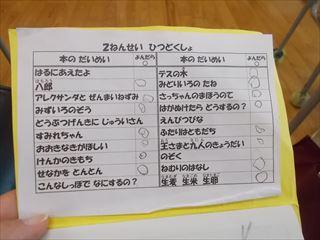 2ねんせい ひつどくしょ
本の だいめい よんだら
はるにあえたよ
八郎
アレクサンダと ぜんまいねずみ
みずいろのぞう
どうぶつげんきに じゅういさん
すみれちゃん
おおきなきがほしい
けんかのきもち
せなかを とんとん
こんなしっぽで なにするの？
本の だいめい よんだら
テスの木
みどりいろの たね
さっちゃんのまほうのて
はがぬけたら どうするの？
えんぴつびな
ふたりはともだち
王さまと九人のきょうだい
のぞく
ねむりのはなし
生麦 生米 生卵